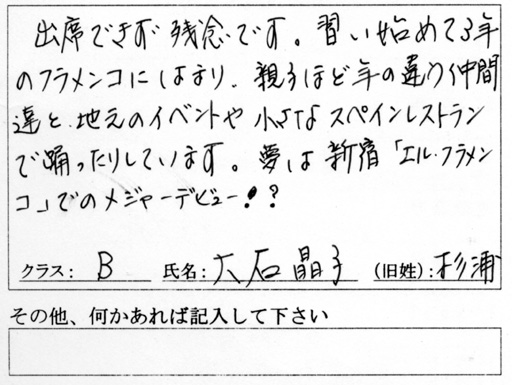 出席できず残念です。習い始めて3年
のフラメンコにはまり、親子ほど年の違う仲間
達と地元のイベントや小さなスペインレストラン
で踊ったりしています。夢は新宿「エル・フラメン
コ」でのメジャーデビュー!?
クラス: B 氏名: 大石晶子 (旧姓): 杉浦
その他、何かあれば記入して下さい